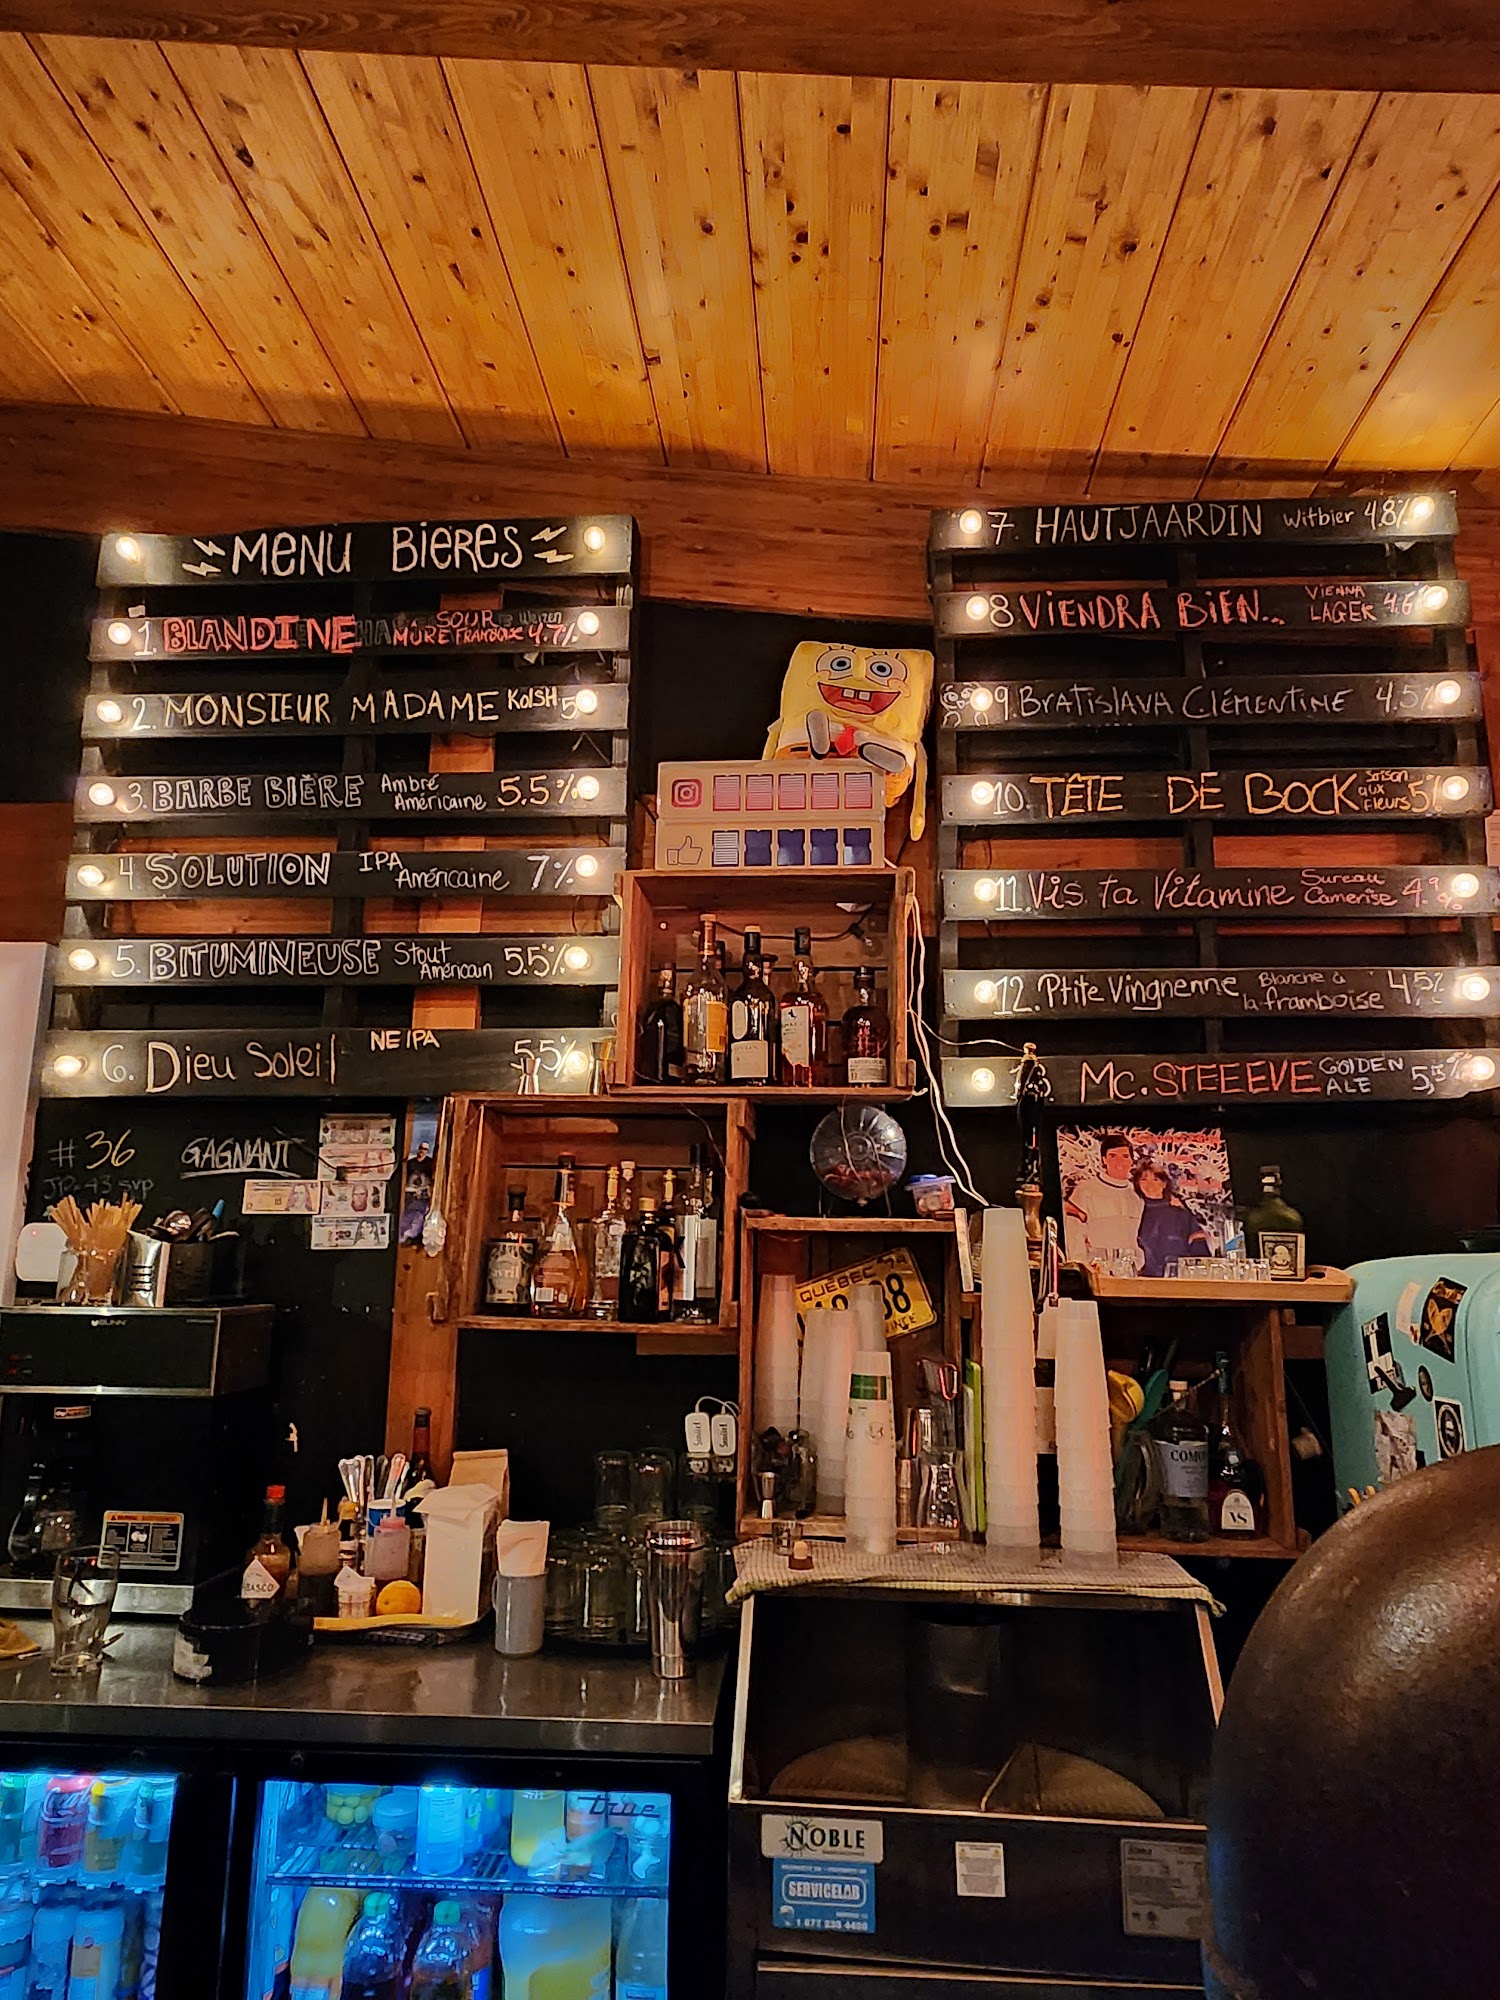 MENU BIERES
1. BLANDINE SOUR MÛRE FRAMBOISE 4.7%
2. MONSIEUR MADAME KOLSH 5
3. BARBE BIÈRE Ambré Américaine 5.5%
4. SOLUTION IPA Américaine 7%
5. BITUMINEUSE Stout Américain 5.5%
6. Dieu Soleil NEIPA 5,5%
#36 GAGNANT
7. HAUTJAARDIN Witbier 4.8%
8 VIENDRA BIEN... VIENNA LAGER 4.6
9. BRATISLAVA CLÉMENTINE 4.5%
10. TÊTE DE BOCK Saison aux fleurs 5%
11. Vis ta Vitamine Sureau Camerise 4.
12. Ptite Vingnenne Blanche à la framboise 4.5%
Mc. STEEEVE GOLDEN ALE 5,5%
QUÉBEC
BUNN
COMO
VS
true
NOBLE
SERVICELAB